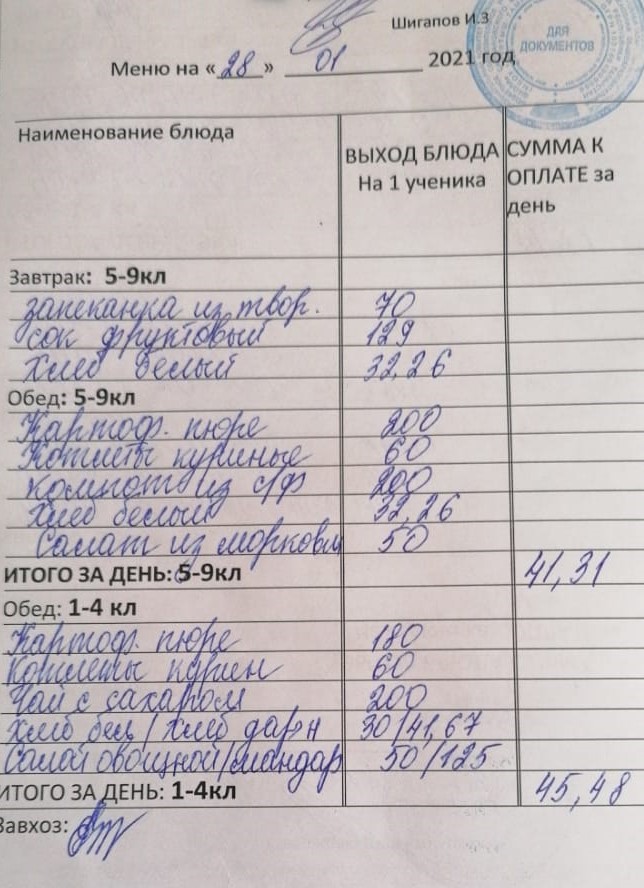 Шигапов И.З
ДЛЯ
ДОКУМЕНТОВ
Меню на «28» 01 2021 год
Наименование блюда
ВЫХОД БЛЮДА
На 1 ученика
СУММА К
ОПЛАТЕ за
день
Завтрак: 5-9кл
запеканка из твор. 70
сок фруктовый 129
Хлеб белый 32,26
Обед: 5-9кл
Картоф. пюре 200
Котлеты куриные 60
компот из с/ф 200
Хлеб белый 32,26
Салат из моркови 50
ИТОГО ЗА ДЕНЬ: 5-9кл 41,31
Обед: 1-4 кл
Картоф. пюре 180
Котлеты курин 60
Чай с сахаром 200
Хлеб бел / Хлеб дарн 30/41,67
Салат овощной/мандар 50/125
ИТОГО ЗА ДЕНЬ: 1-4кл 45,48
Завхоз: